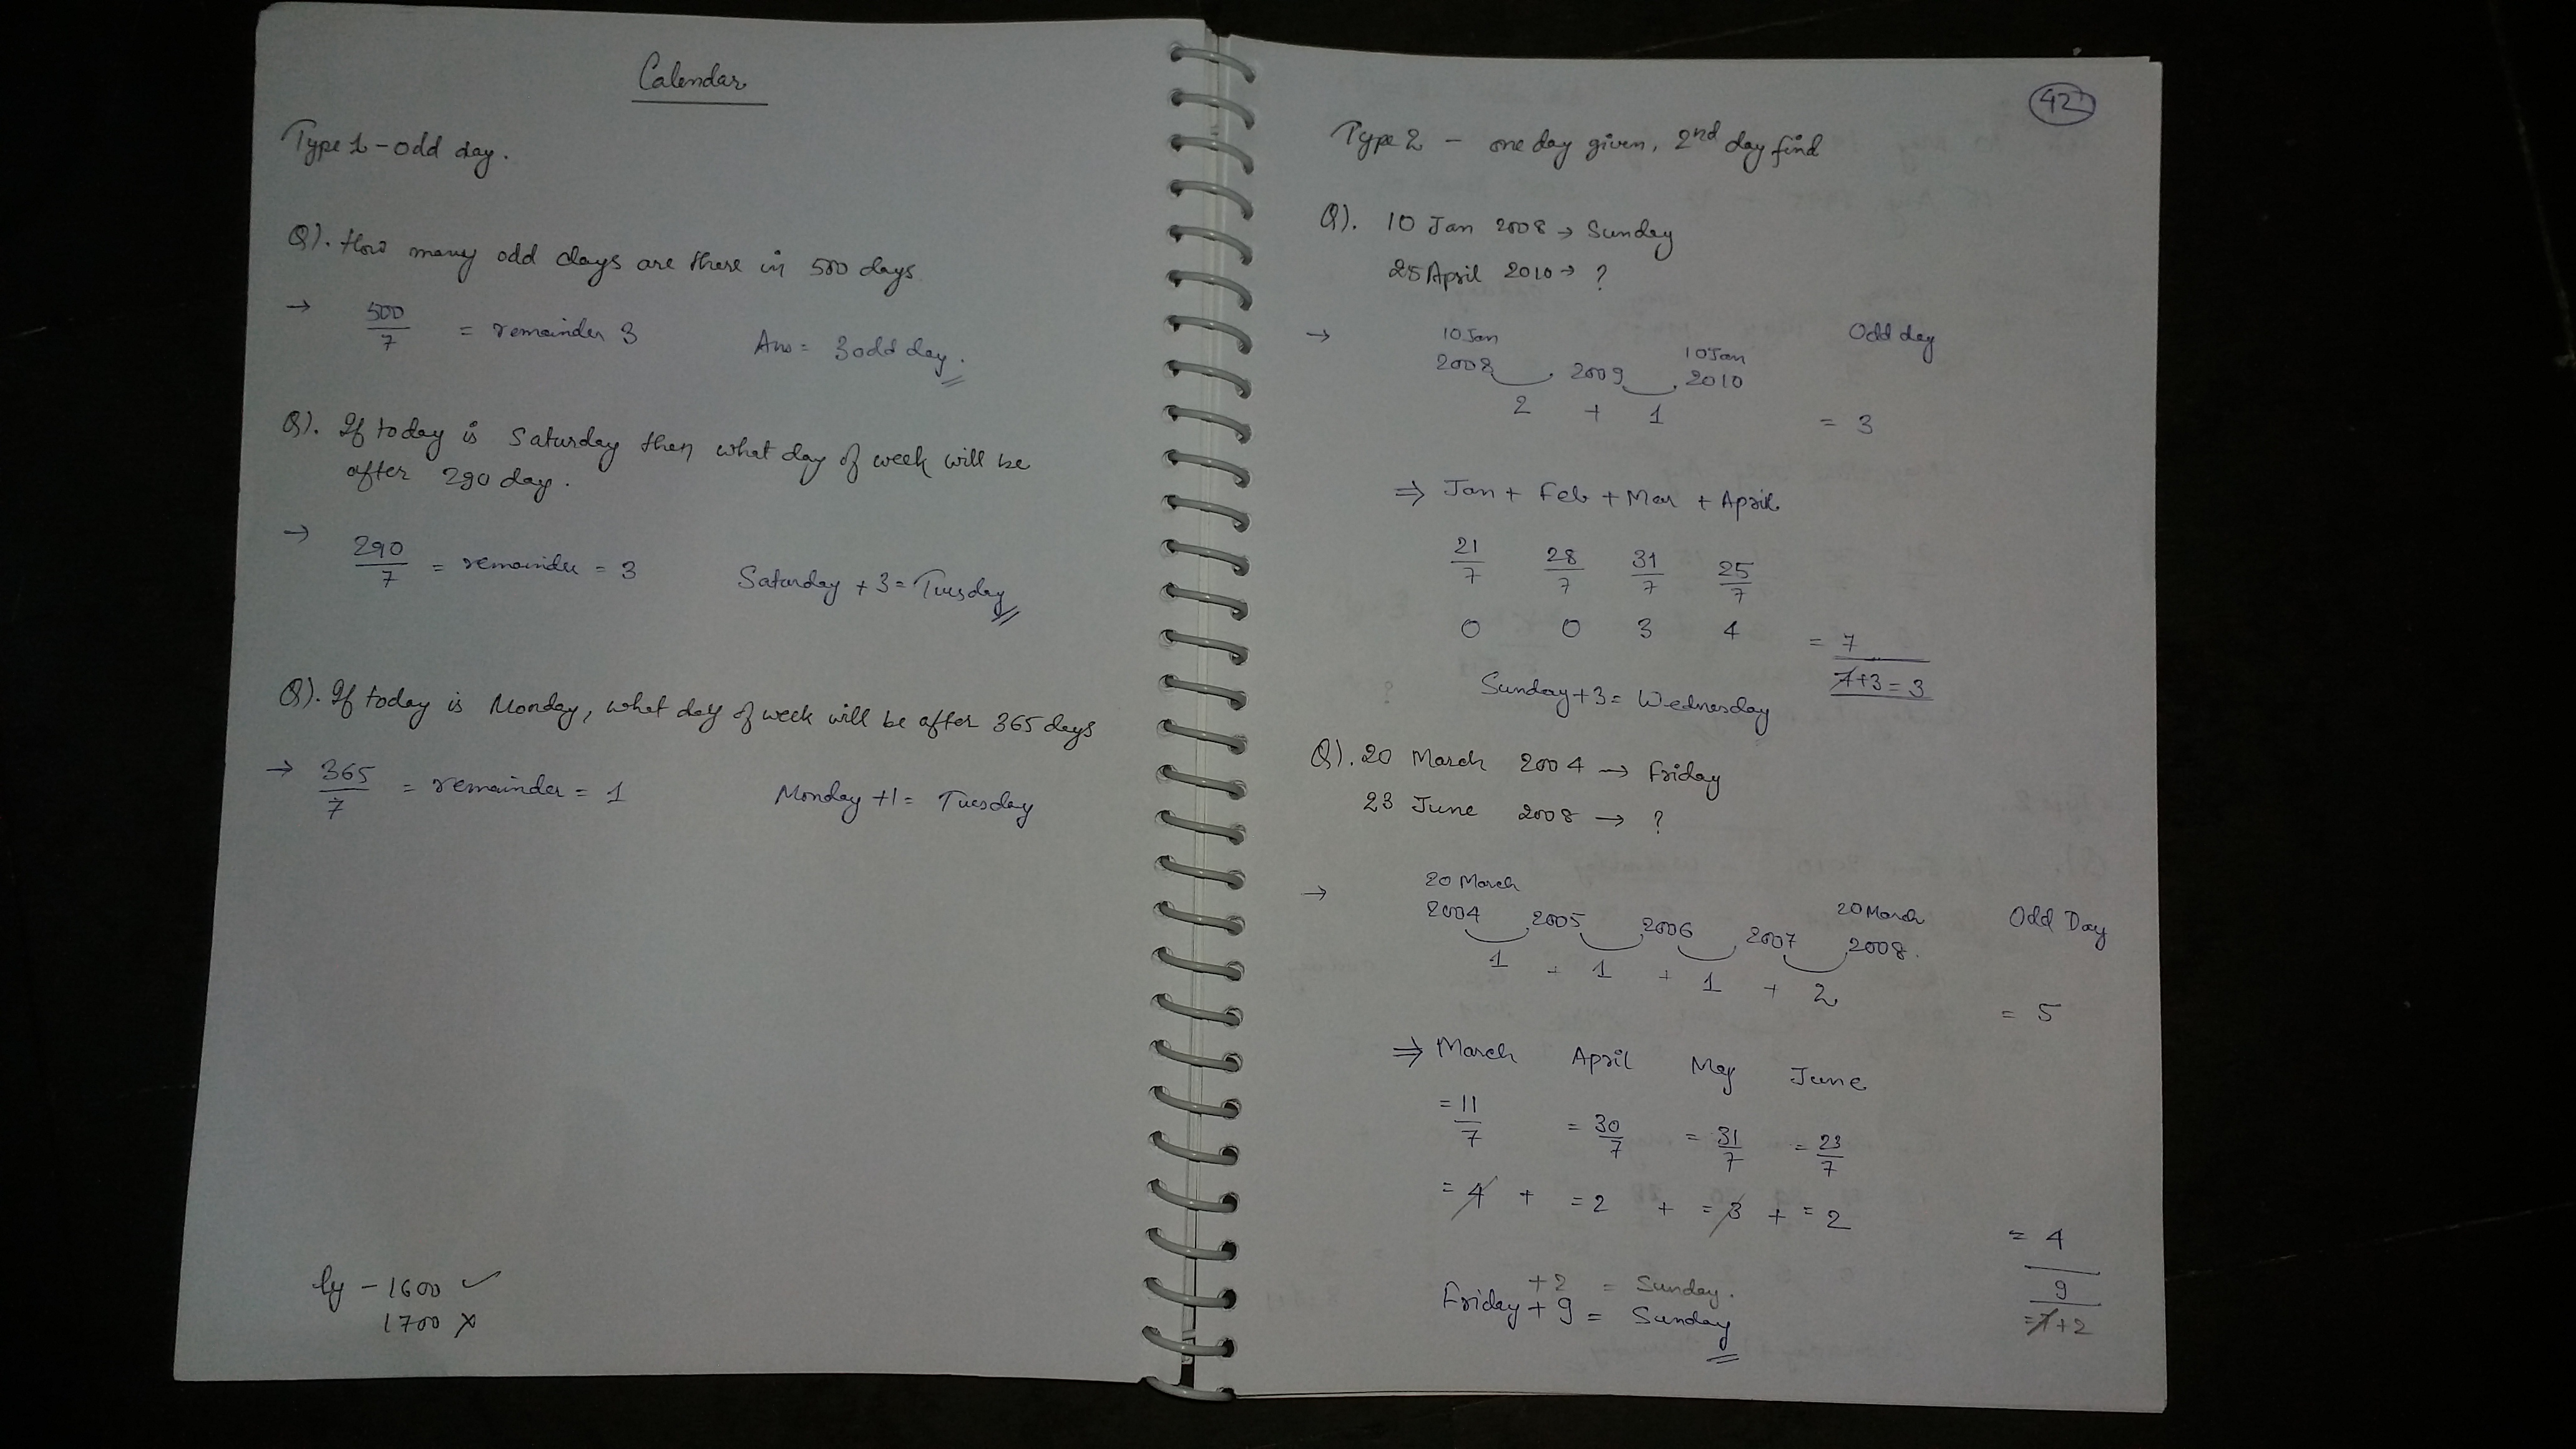 Calendar
Type 1 - odd day.
Q). How many odd days are there in 500 days
→ 500/7 = remainder 3 Ans = 3 odd day.
Q). If today is Saturday then what day of week will be
after 290 day.
→ 290/7 = remainder = 3 Saturday + 3 = Tuesday
Q). If today is Monday, what day of week will be after 365 days
→ 365/7 = remainder = 1 Monday +1 = Tuesday
ly - 1600 ✓
1700 ×
42
Type 2 - one day given, 2nd day find
Q). 10 Jan 2008 → Sunday
25 April 2010 → ?
→ 10 Jan 10 Jan Odd day
2008 2009 2010
2 + 1 = 3
⇒ Jan + Feb + Mar + April
21/7 28/7 31/7 25/7
0 0 3 4 = 7
7+3 = 3
Sunday + 3 = Wednesday
Q). 20 March 2004 → Friday
23 June 2008 → ?
→ 20 March 20 March Odd Day
2004 2005 2006 2007 2008.
1 + 1 + 1 + 2 = 5
⇒ March April May June
= 11/7 = 30/7 = 31/7 = 23/7
= 4 + = 2 + = 3 + = 2 = 4
9
= 7+2
+2 = Sunday.
Friday + 9 = Sunday